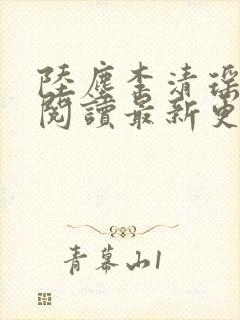 陸塵李清瑤
閱讀最新更
青幕山1